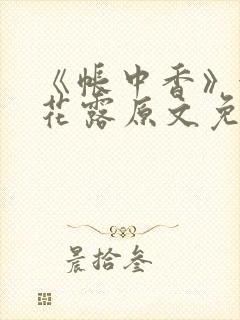 《帐中香》
花露原文免
晨拾叁